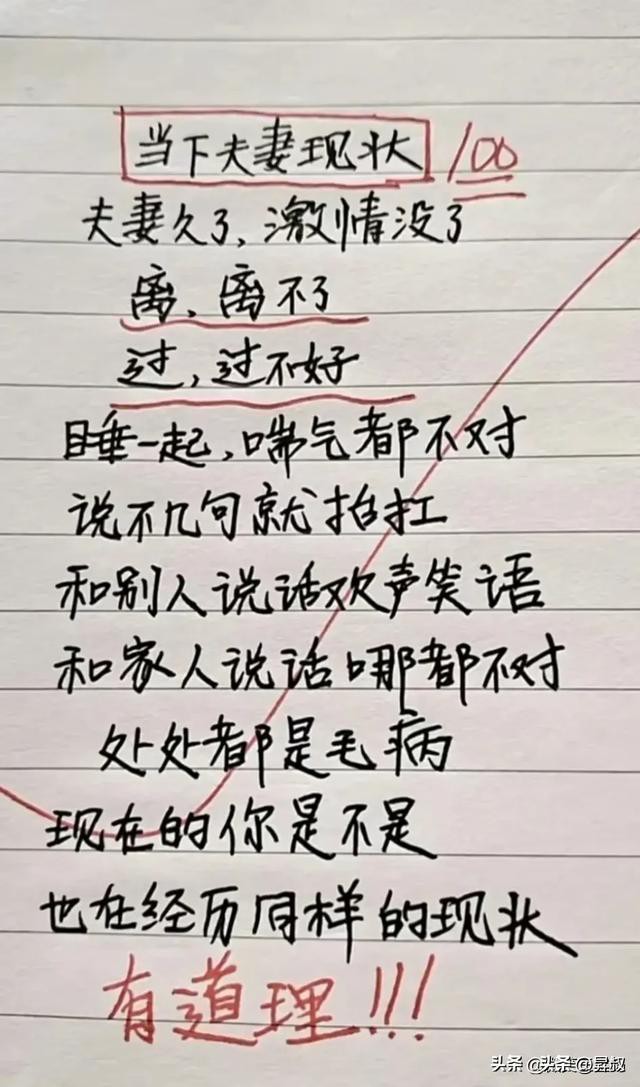 当下夫妻现状 100
夫妻久了,激情没了
离,离不了
过,过不好
睡一起,喘气都不对
说不几句就抬扛
和别人说话欢声笑语
和家人说话哪都不对
处处都是毛病
现在的你是不是
也在经历同样的现状
有道理!!!
头条 @昙叔